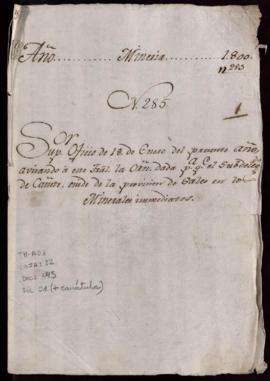 Año Mineria 1.800
N. 285
1
Sor
Supr. Oficio de 18. de Enero del presente año,
avisando á este Tral. la Orn. dada pa. qe. el Subdeleg.
de Cañete, cuide de la provision de Sales en los
Minerales immediatos.
TM-AD3
CAJA: 22
DOC: 1445
FOL. 01 (+ carátula)